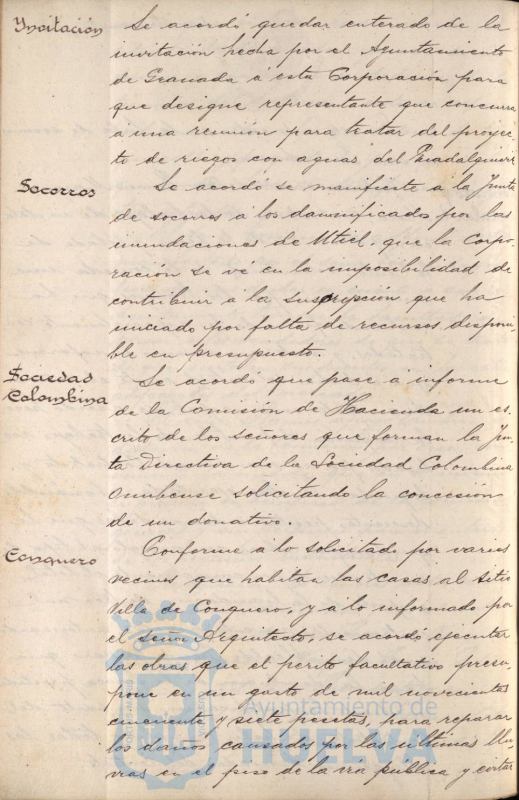 Invitación
Se acordó quedar enterado de la
invitación hecha por el Ayuntamiento
de Granada á esta Corporación para
que designe representante que concurra
a una reunión para tratar del proyec-
to de riegos con aguas del Guadalquivir
Socorros
Se acordó se manifieste á la Junta
de socorros á los damnificados por las
inundaciones de Utiel, que la Corpo-
ración se vé en la imposibilidad de
contribuir á la suscripción que ha
iniciado por falta de recursos disponi-
ble en presupuesto.
Sociedad
Colombina
Se acordó que pase a informe
de la Comisión de Hacienda un es-
crito de los señores que forman la Jun-
ta Directiva de la Sociedad Colombina
Onubense solicitando la concesión
de un donativo.
Conquero
Conforme á lo solicitado por varios
vecinos que habitan las casas al sitio
Villa de Conquero, y a lo informado por
el señor Arquitecto, se acordó ejecutar
las obras que el perito facultativo presu-
pone en un gasto de mil novecientas
cincuenta y siete pesetas, para reparar
los daños causados por las últimas llu-
vias en el piso de la vía pública y evitar
Ayuntamiento de
HUELVA